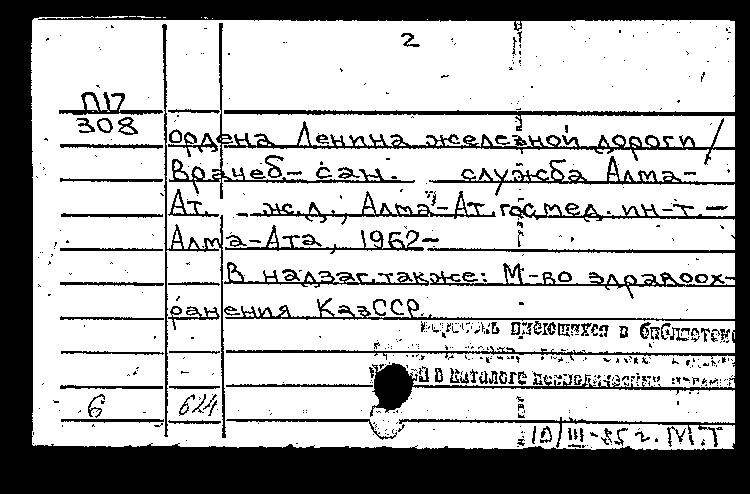 2
П17
308
ордена Ленина железной дороги /
Врачеб-сан. служба Алма-
Ат. ж.д., Алма-Ат. гос. мед. ин-т. —
Алма-Ата, 1962-
В надзаг. также: М-во здравоох-
ранения КазССР.
имеющихся в библиотеке
в каталоге периодических
6 624
10/III-85 г. М.Т.